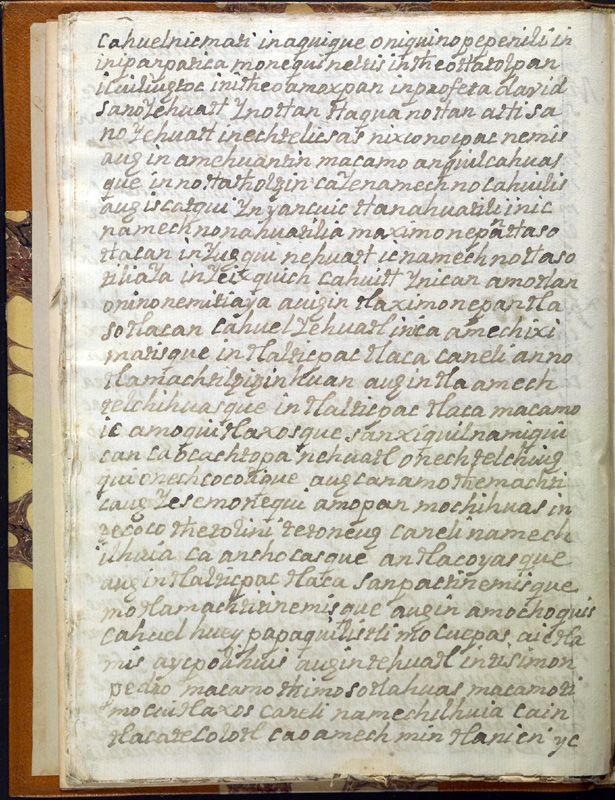 cahuel nicmati in aquique oniquinopepenili in
inipanpatca monequi neltis in theottatolpan
ilcuiliugtoc ini theoamoxpan in profeta david
sano Yehuatt Ynottan ttaqua nottan atti sa
no Yehuatt inechtelicsas nixco nocpac nemis
aug in amehuantzin macamo anquilcahuas
que in nottathotzin ca Yenamech no cahuilis
aug iscatqui Yn yancuic ttanahuatili inic
namech nonahuatilia maximonepanttaso
ttacan in Yugqui nehuatt ic namech nottaso
tiliaYa in Yeix quich cahuitt Ynican amottan
oninonemitiaya augin tlaximonepantla
sotlacan cahuel Yehuatl inica amechixi
matisque in tlalticpac tlaca caneli anno
tlamachtiltzitzinhuan aug in tla amech
telchihuasque in tlalticpac tlaca macamo
ic amoquitlaxosque san xiquilnamiqui
can ca bcachtopa nehuatl onechtelchiug
qui onechcocolique aug canamo themachti
caug Yesemortequi amopan mochihuas in
tecoco thetolini teroneug caneli namech
ilhuia ca anchocasque antlacoyasque
aug in tlalticpac tlaca sanpactinemisque
motlamachtitinemisque aug in amochoquis
cahuel huey papaquilistli mocuepas aictla
mis aycpolihuis aug in tehuatl intisimon
pedro macamo thimosotlahuas macamo ti
mocuitlaxos caneli namechilhuia cain
tlacatecolotl cao amech min tlanicn yc